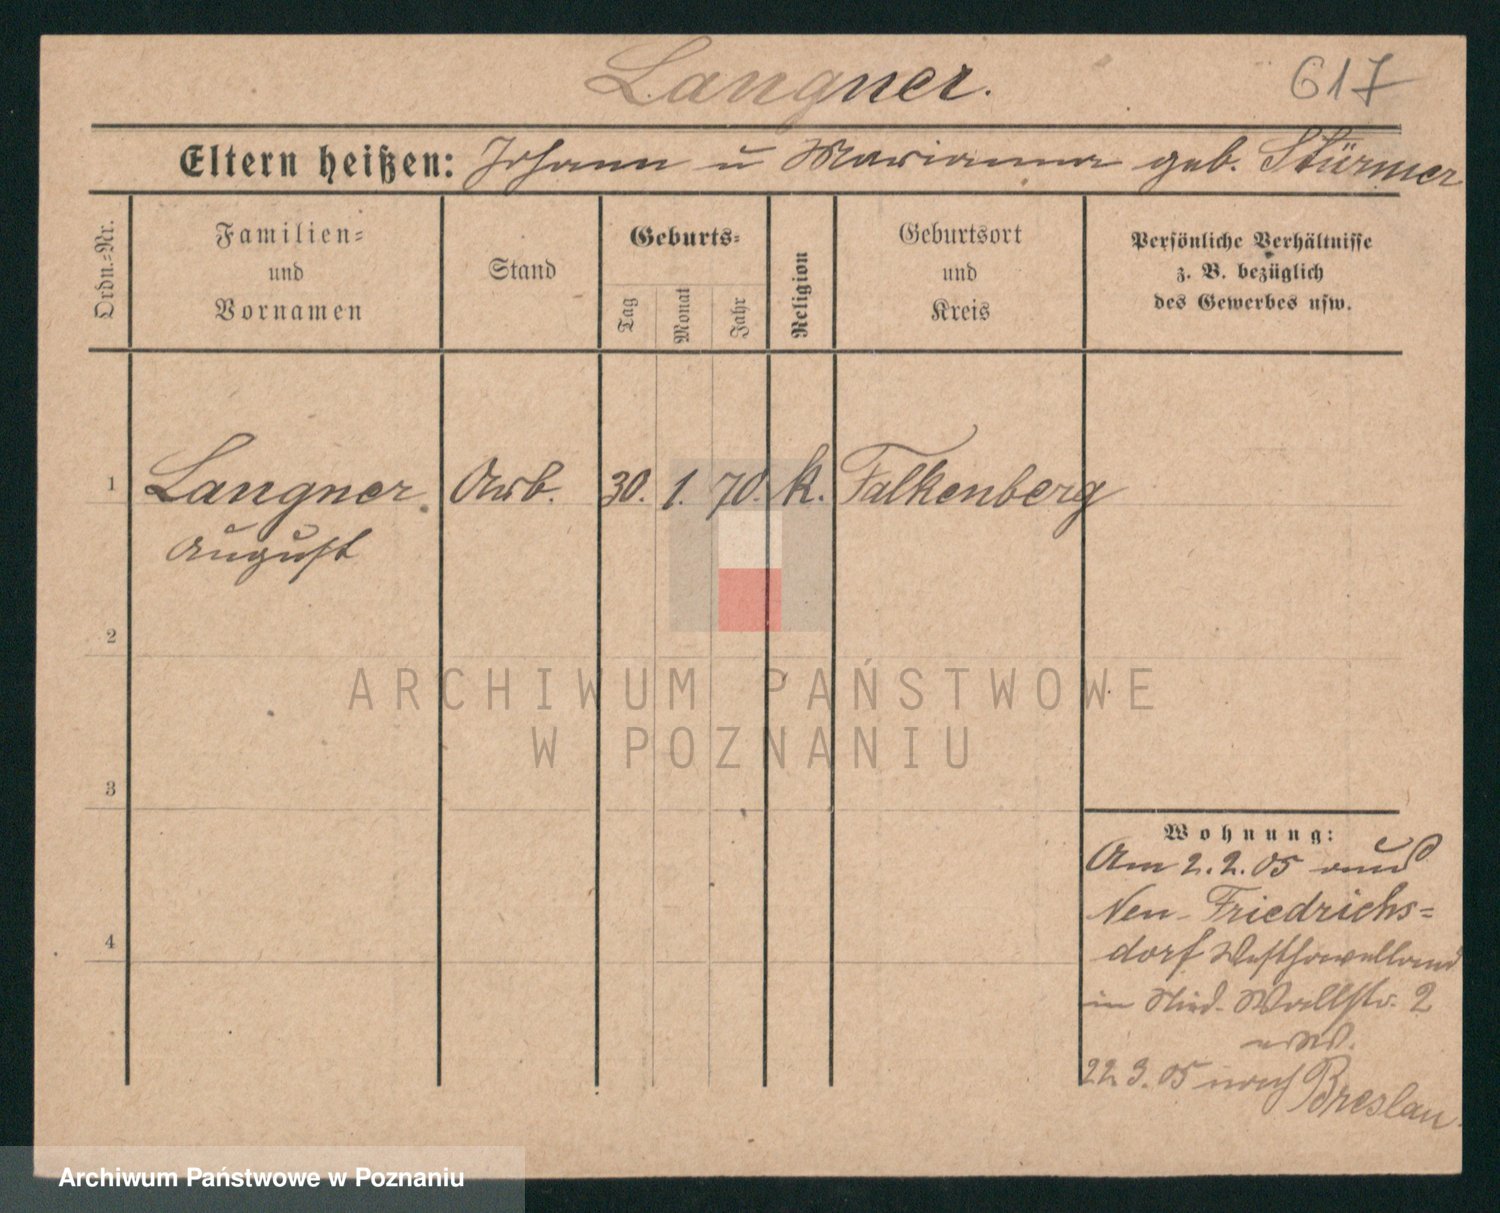 Langner.
617
Eltern heißen: Johann u Marianna geb. Stürmer
Ordn.=Nr.
Familien=
und
Vornamen
Stand
Geburts=
Tag
Monat
Jahr
Religion
Geburtsort
und
Kreis
Persönliche Verhältnisse
z. B. bezüglich
des Gewerbes usw.
1 Langner Arb. 30. 1. 70. k. Falkenberg
August
2
3
4
Wohnung:
Am 2.2.05 aus
Neu-Friedrichs=
dorf Westhavelland
in Wallstr. 2
22 3. 05 nach Breslau
ARCHIWUM PAŃSTWOWE
W POZNANIU
Archiwum Państwowe w Poznaniu